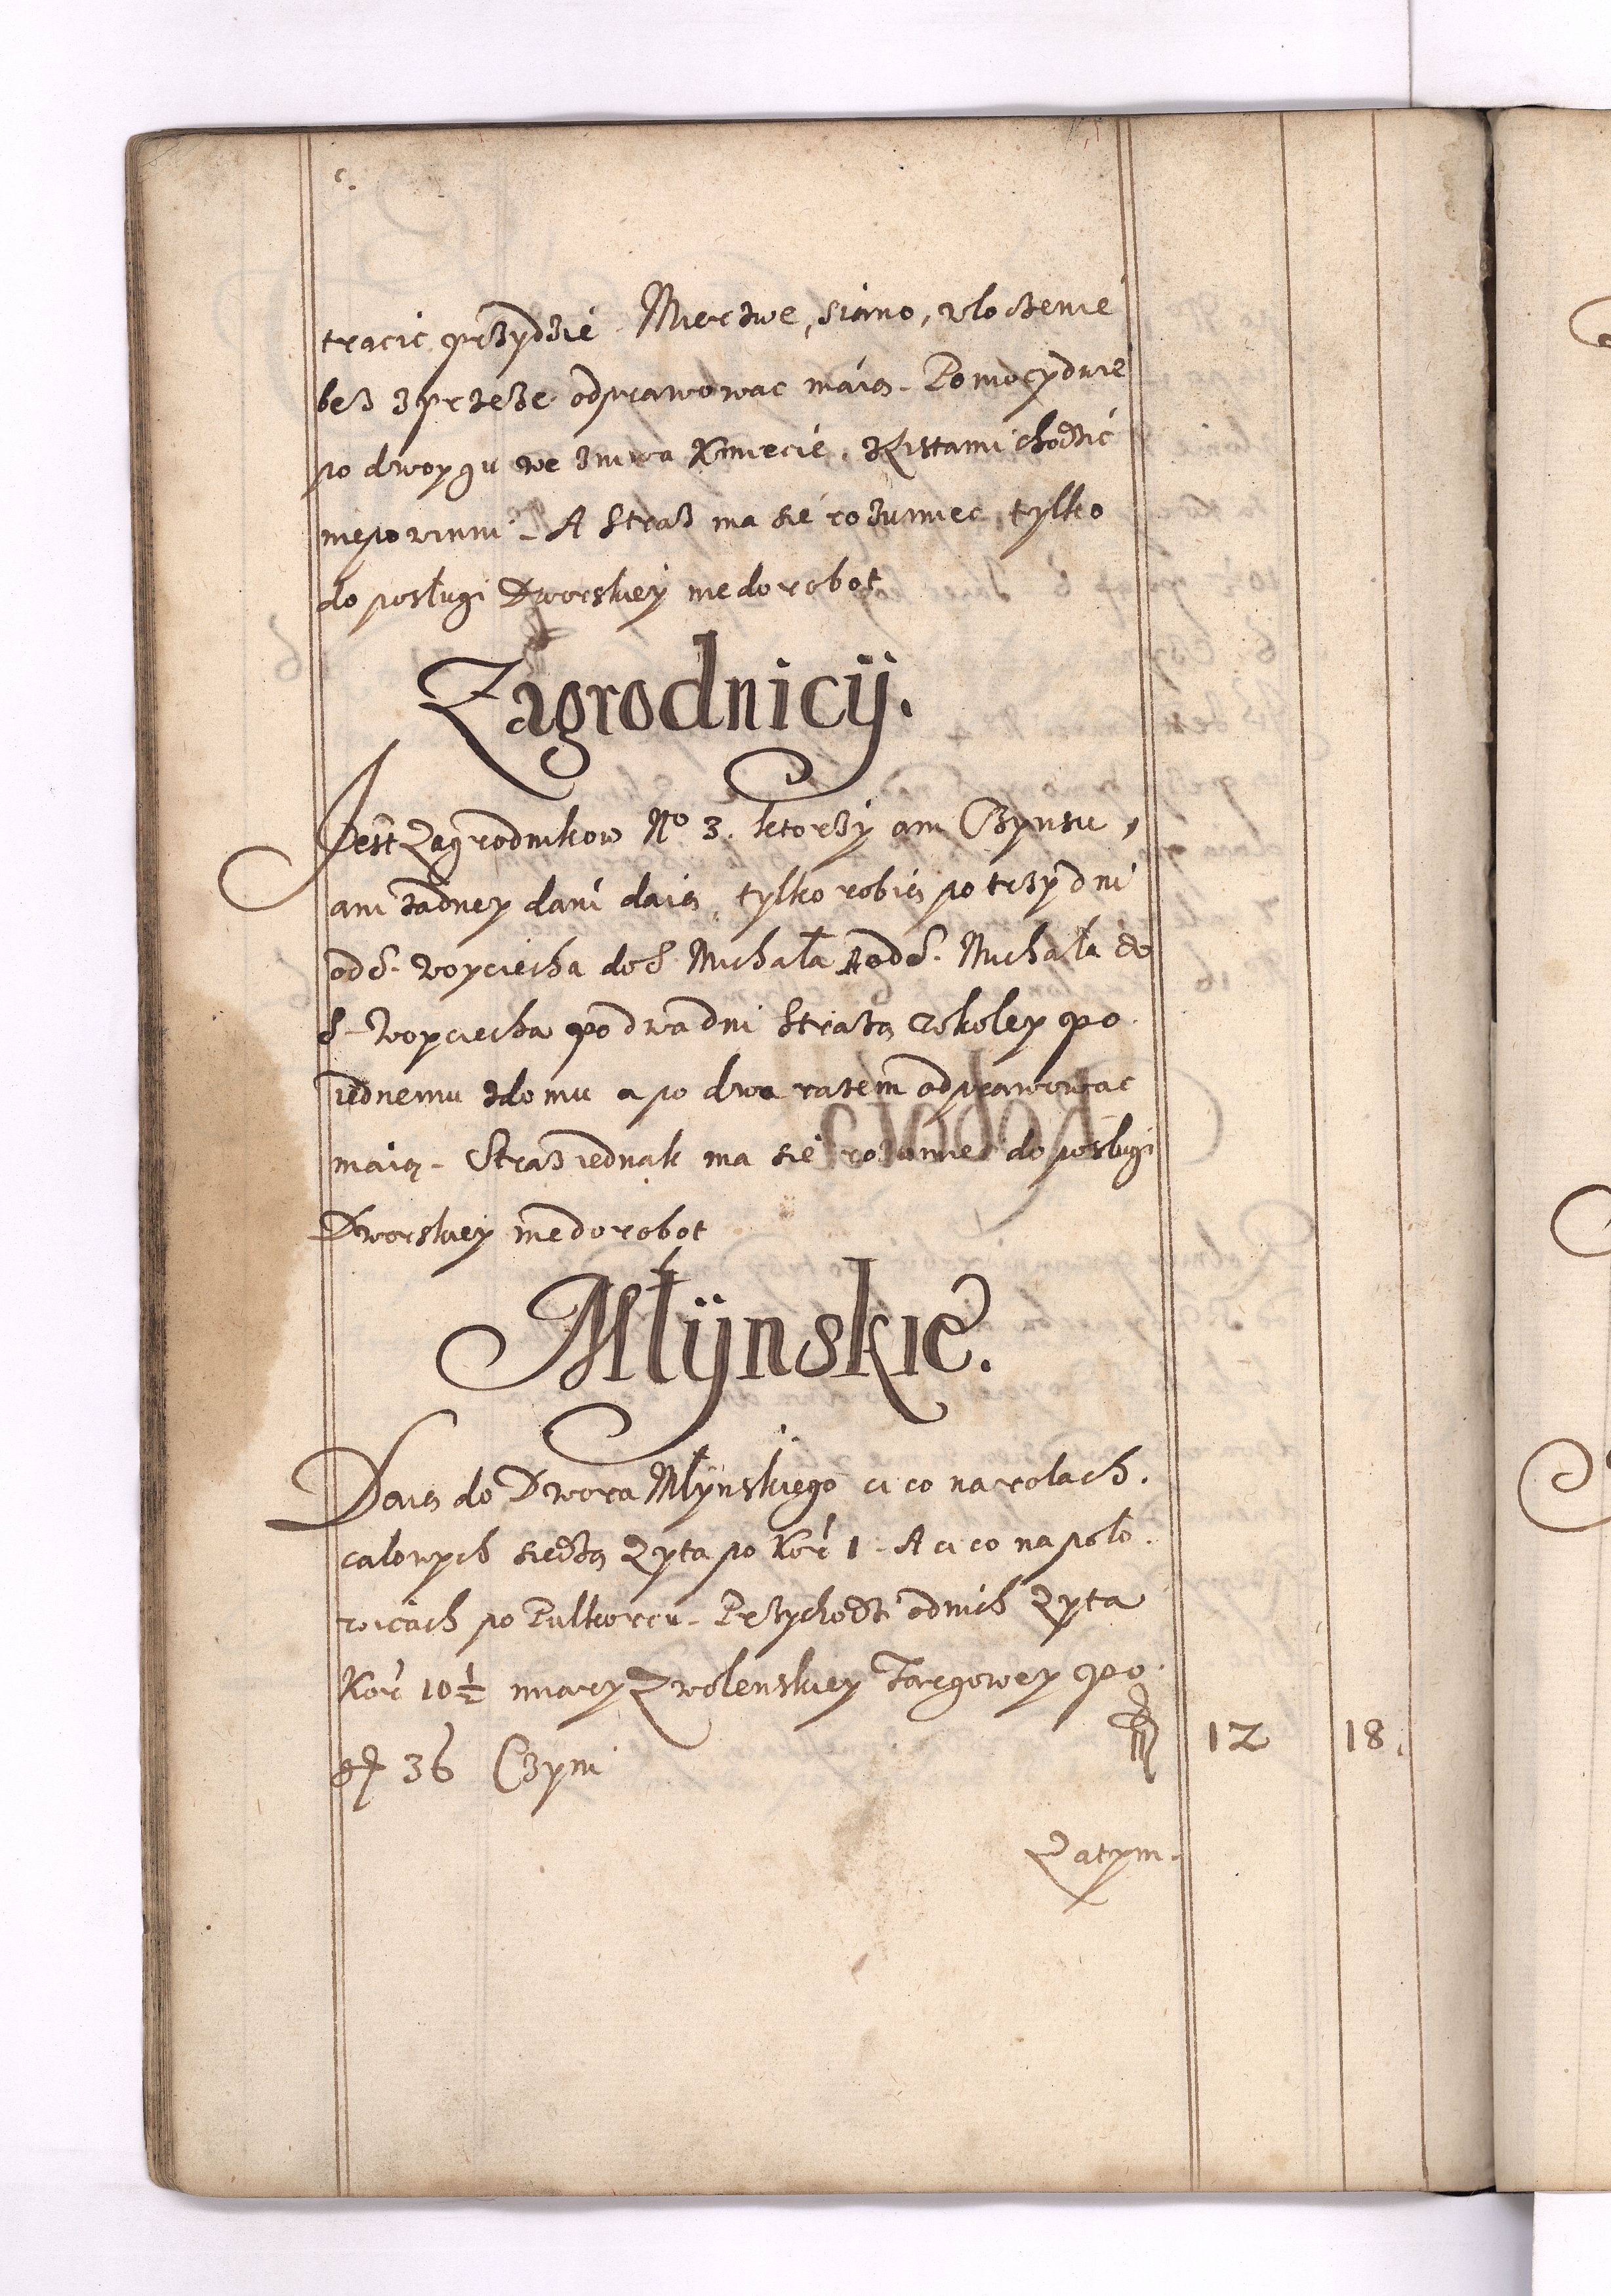 tracic przydzie Mierzwe, siano, vlozenie
bez zprzeze odprawowac maią. Pomocy dwie
po dwoygu we zniwa Kmiecie. Zlistami chodzic
niepowinni. A Straz ma sie rozumiec tylko
do posługi Dworskiey nie do robot
Zagrodnicÿ.
Jest Zagrodnikow No 3. ktorzy ani Czynsu,
ani zadney dani daią, tylko robią po trzy dni
od S. Woyciecha do S Michała A od S. Michała do
S. Woyciecha po dwa dni Strazą zkoley po
iednemu zdomu a po dwa razem odprawowac
maią. Straz iednak ma sie rozumiec do posługi
Dworskiey nie do robot
Młÿnskie.
Daią do Dwora Młynskiego ci co na rolach
całowych siedzą Zyta po Kor 1. A ci co na poło
wicach po Pułkorcu. Przychodzi od nich Zyta
Kor 10½ miary Zwolenskiey Targowey po
gr 36 Czyni 12 18
Zatym.